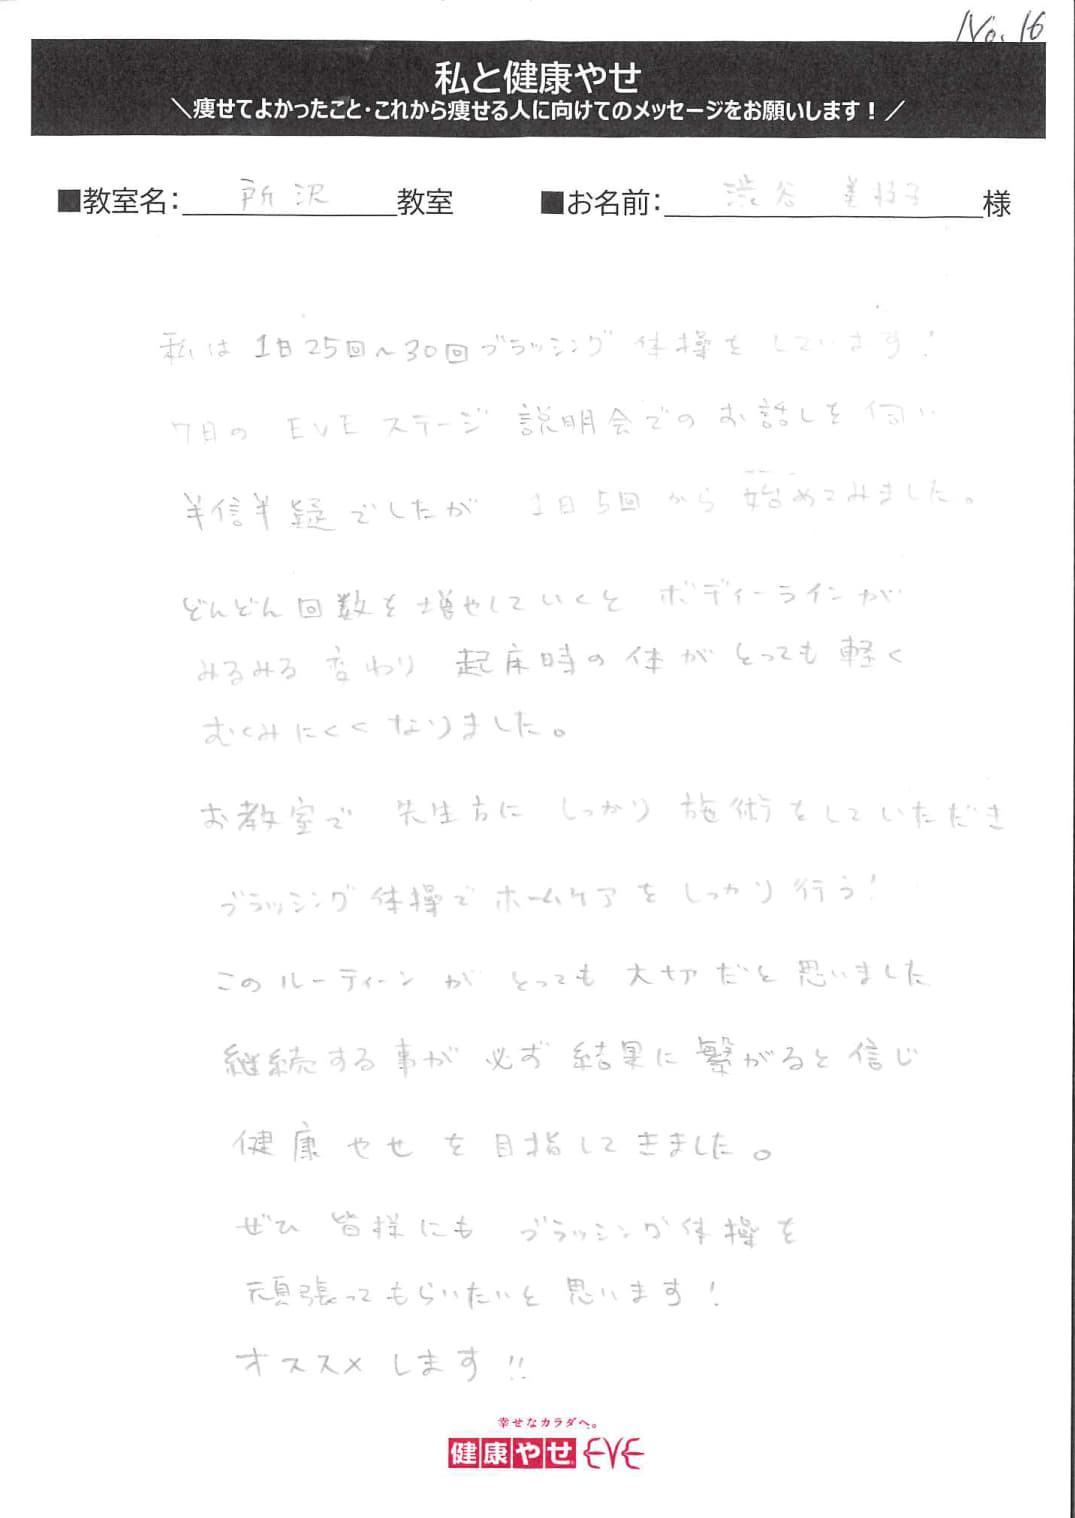 No. 16
私と健康やせ
＼痩せてよかったこと・これから痩せる人に向けてのメッセージをお願いします！／
■教室名：所沢教室 ■お名前：渋谷 美 子様
私は 1日25回〜30回ブラッシング 体操を しています！
7月の EVE ステージ 説明会でのお話しを 伺い
半信半疑でしたが 1日5回から始めてみました。
どんどん回数を増やしていくと ボディーラインが
みるみる変わり 起床時の体がとっても軽く
むくみにくくなりました。
お教室で 先生方に しっかり 施術をしていただき
ブラッシング体操でホームケアをしっかり行う！
このルーティーンが とっても大切だと思いました
継続する事が 必ず結果に繋がると信じ
健康やせを目指してきました。
ぜひ 皆様にも ブラッシング体操を
頑張ってもらいたいと思います！
オススメします!!
幸せなカラダへ。
健康やせ EVE